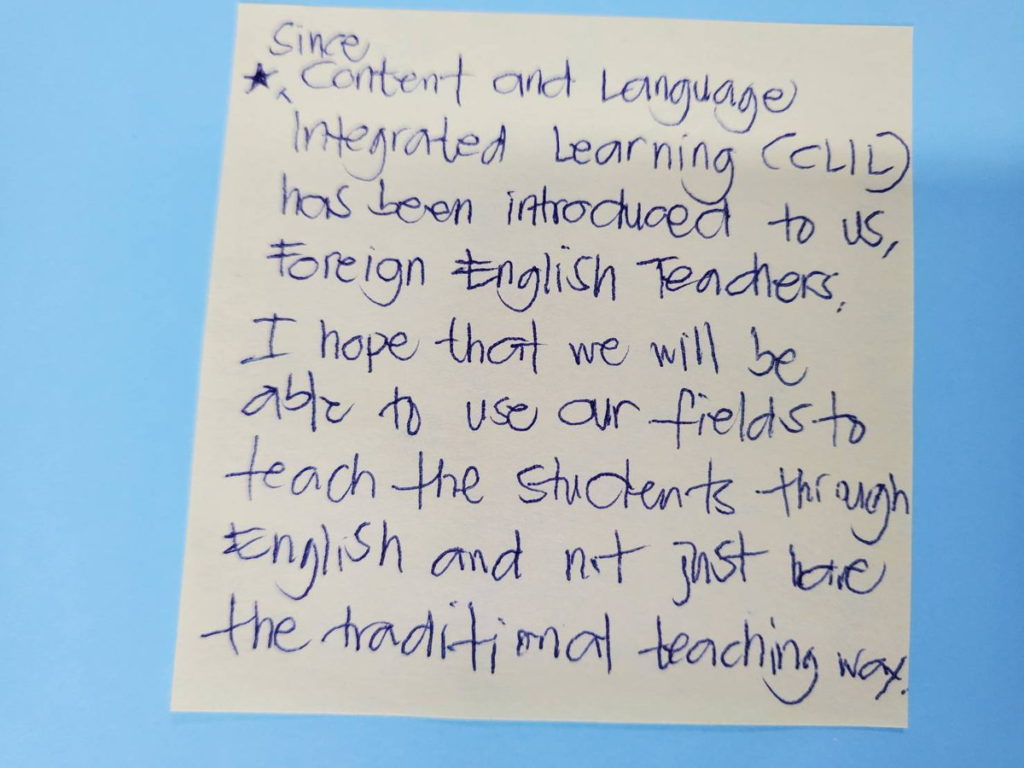 Since
★ Content and Language
Integrated Learning (CLIL)
has been introduced to us,
Foreign English Teachers.
I hope that we will be
able to use our fields to
teach the students through
English and not just have
the traditional teaching way.